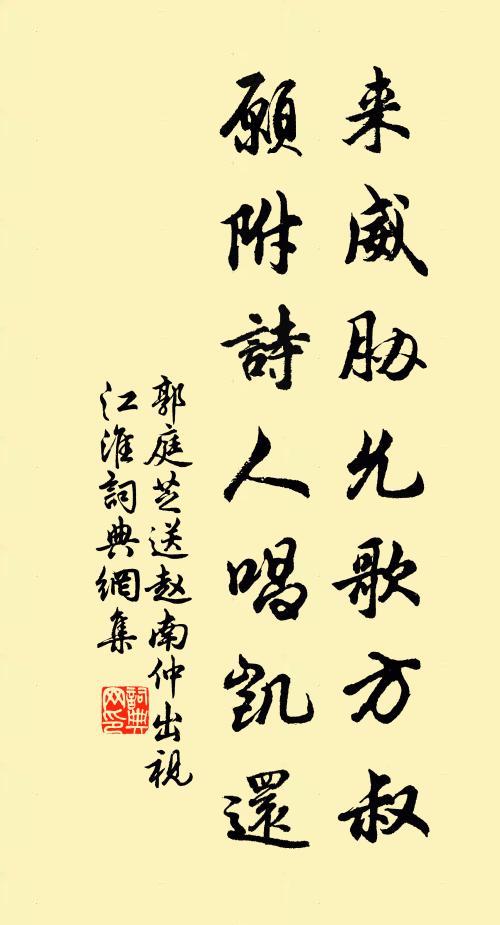 来威胁允歌方叔
願附詩人唱凱還
郭庭芝送赵南仲出视
江淮詞典網集
詞典
网印